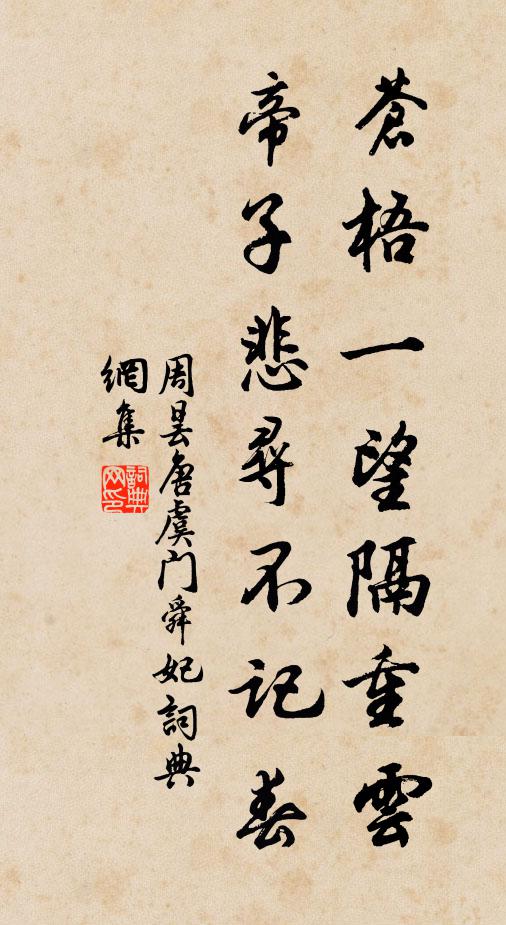 蒼梧一望隔重雲
帝子悲尋不記春
周曇唐虞門舜妃詞典
網集
詞典網印